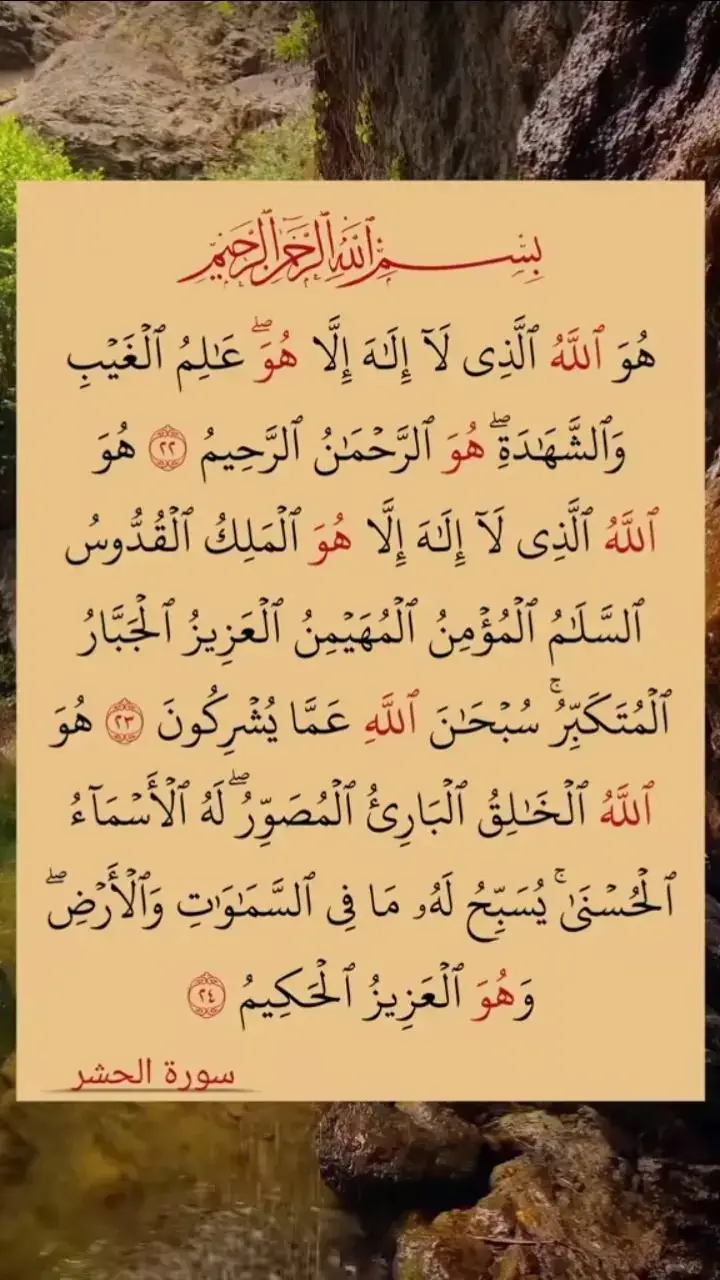 بِسْمِ ٱللَّهِ ٱلرَّحْمَٰنِ ٱلرَّحِيمِ
هُوَ ٱللَّهُ ٱلَّذِى لَآ إِلَٰهَ إِلَّا هُوَ ۖ عَٰلِمُ ٱلْغَيْبِ
وَٱلشَّهَٰدَةِ ۖ هُوَ ٱلرَّحْمَٰنُ ٱلرَّحِيمُ ٢٢ هُوَ
ٱللَّهُ ٱلَّذِى لَآ إِلَٰهَ إِلَّا هُوَ ٱلْمَلِكُ ٱلْقُدُّوسُ
ٱلسَّلَٰمُ ٱلْمُؤْمِنُ ٱلْمُهَيْمِنُ ٱلْعَزِيزُ ٱلْجَبَّارُ
ٱلْمُتَكَبِّرُ ۚ سُبْحَٰنَ ٱللَّهِ عَمَّا يُشْرِكُونَ ٢٣ هُوَ
ٱللَّهُ ٱلْخَٰلِقُ ٱلْبَارِئُ ٱلْمُصَوِّرُ ۖ لَهُ ٱلْأَسْمَآءُ
ٱلْحُسْنَىٰ ۚ يُسَبِّحُ لَهُۥ مَا فِى ٱلسَّمَٰوَٰتِ وَٱلْأَرْضِ ۖ
وَهُوَ ٱلْعَزِيزُ ٱلْحَكِيمُ ٢٤
سورة الحشر